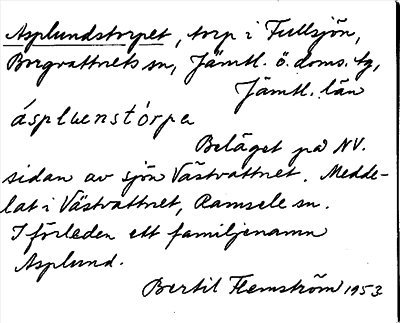 Asplundstorpet, torp i Fullsjön,
Borgvattnets sn, Jämtl. ö. doms. tg,
Jämtl. län
áspluenstórpa
Beläget på NV.
sidan av sjön Västvattnet. Medde-
lat i Västvattnet, Ramsele sn.
I förleden ett familjenamn
Asplund.
Bertil Flemström 1953